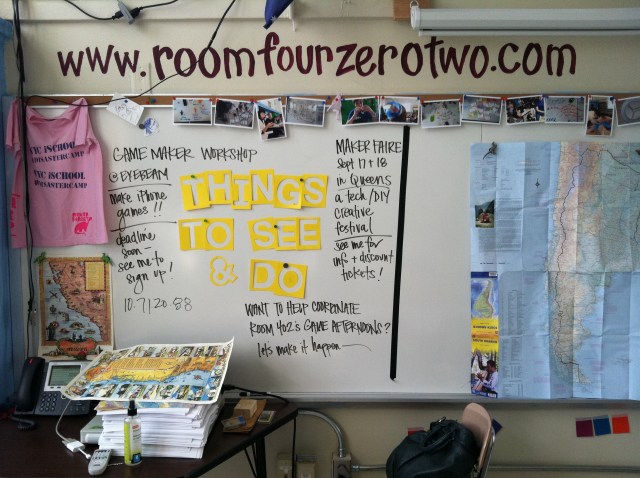 www.roomfourzerotwo.com
GAME MAKER WORKSHOP
@EYEBEAM
make iPhone
games!!
deadline
soon –
see me to
sign up!
10.7|20 88
THINGS
TO SEE
& DO
MAKER FAIRE
Sept 17 + 18
in Queens
a tech/DIY
creative
festival
see me for
info + discount
tickets!
WANT TO HELP COORDINATE
ROOM 402'S GAME AFTERNOONS?
let's make it happen
iSCHOOL
iSCHOOL